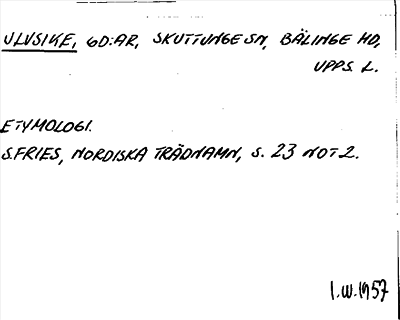 ULVSIKE, GD:AR, SKUTTUNGE SN, BÄLINGE HD,
UPPS. L.
ETYMOLOGI.
S.FRIES, NORDISKA TRÄDNAMN, S. 23 NOT 2.
I.W.1957